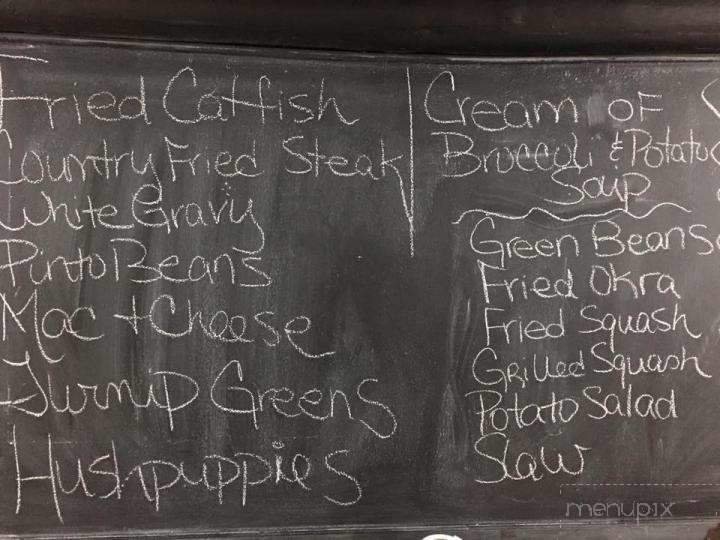 Fried Catfish
Country Fried Steak
White Gravy
Pinto Beans
Mac + Cheese
Turnip Greens
Hushpuppies
Cream of
Broccoli & Potato
Soup
Green Beans
Fried Okra
Fried Squash
Grilled Squash
Potato Salad
Slaw
menupix